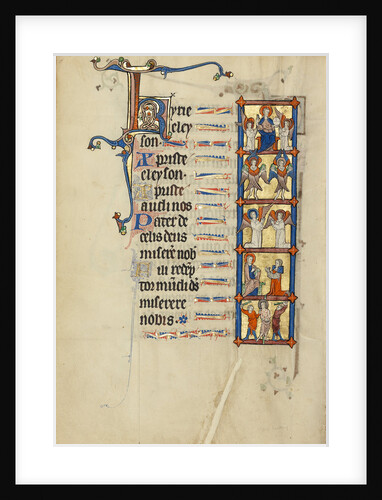 Kyrie
eley
son.
Xpriste
eleyson.
Xpriste
audi nos
Pater de
celis deus
miserere nob
Fili redemp
tor mundi ds
miserere
nobis.